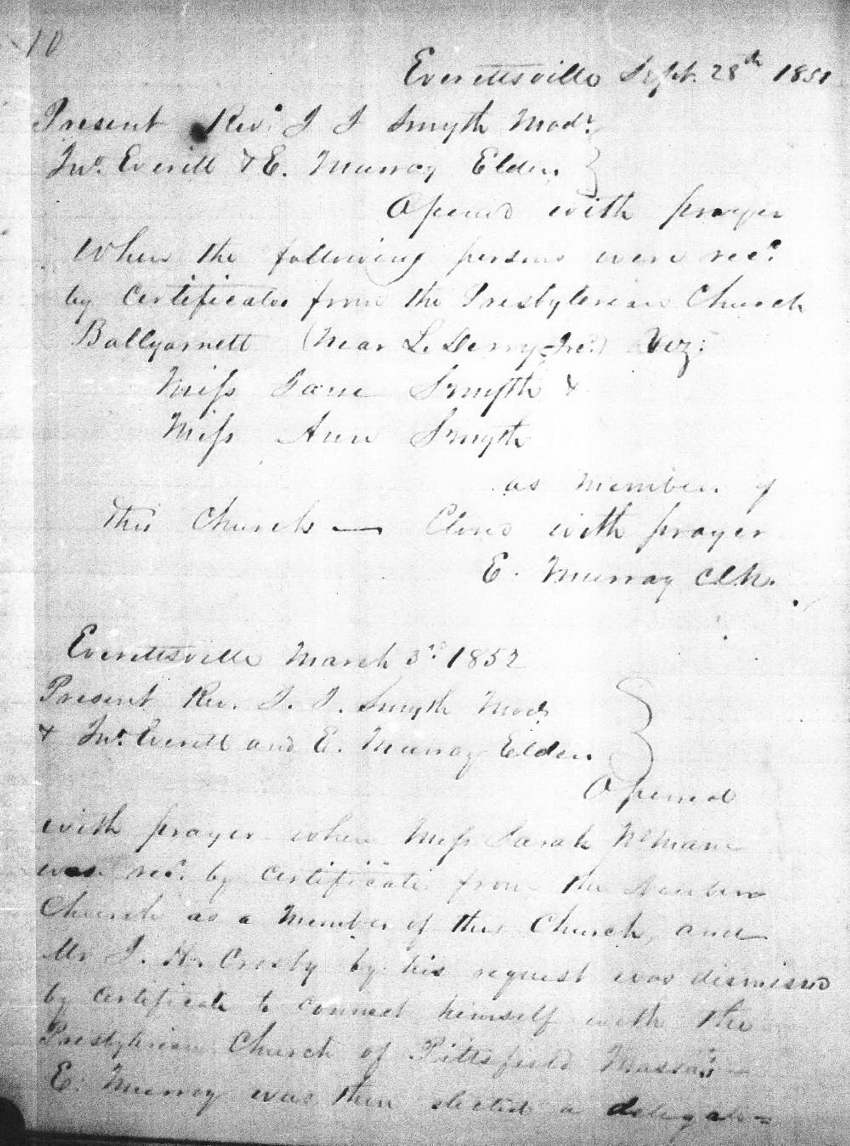 10
Everettsville Sept. 28th 1851
Present Rev. J J Smyth Modr
Jno. Everitt & E. Murray Elders
Opened with prayer
When the following persons were recd
by certificates from the Presbyterian Church
Ballyarnett (Near L. Derry Ire.) Viz:
Miss Jane Smyth &
Miss Ann Smyth
as members of
this Church — Closed with prayer
E. Murray Clk.
Everettsville March 3rd 1852
Present Rev. J. J. Smyth Modr
& Jno. Everett and E. Murray Elders
Opened
with prayer when Miss Sarah
was recd by certificate from the
Church as a member of this Church, and
Mr J. H. Crosby by his request was dismissed
by certificate to connect himself with the
Presbyterian Church of Pittsfield Massa.
E. Murray was then elected a delegate